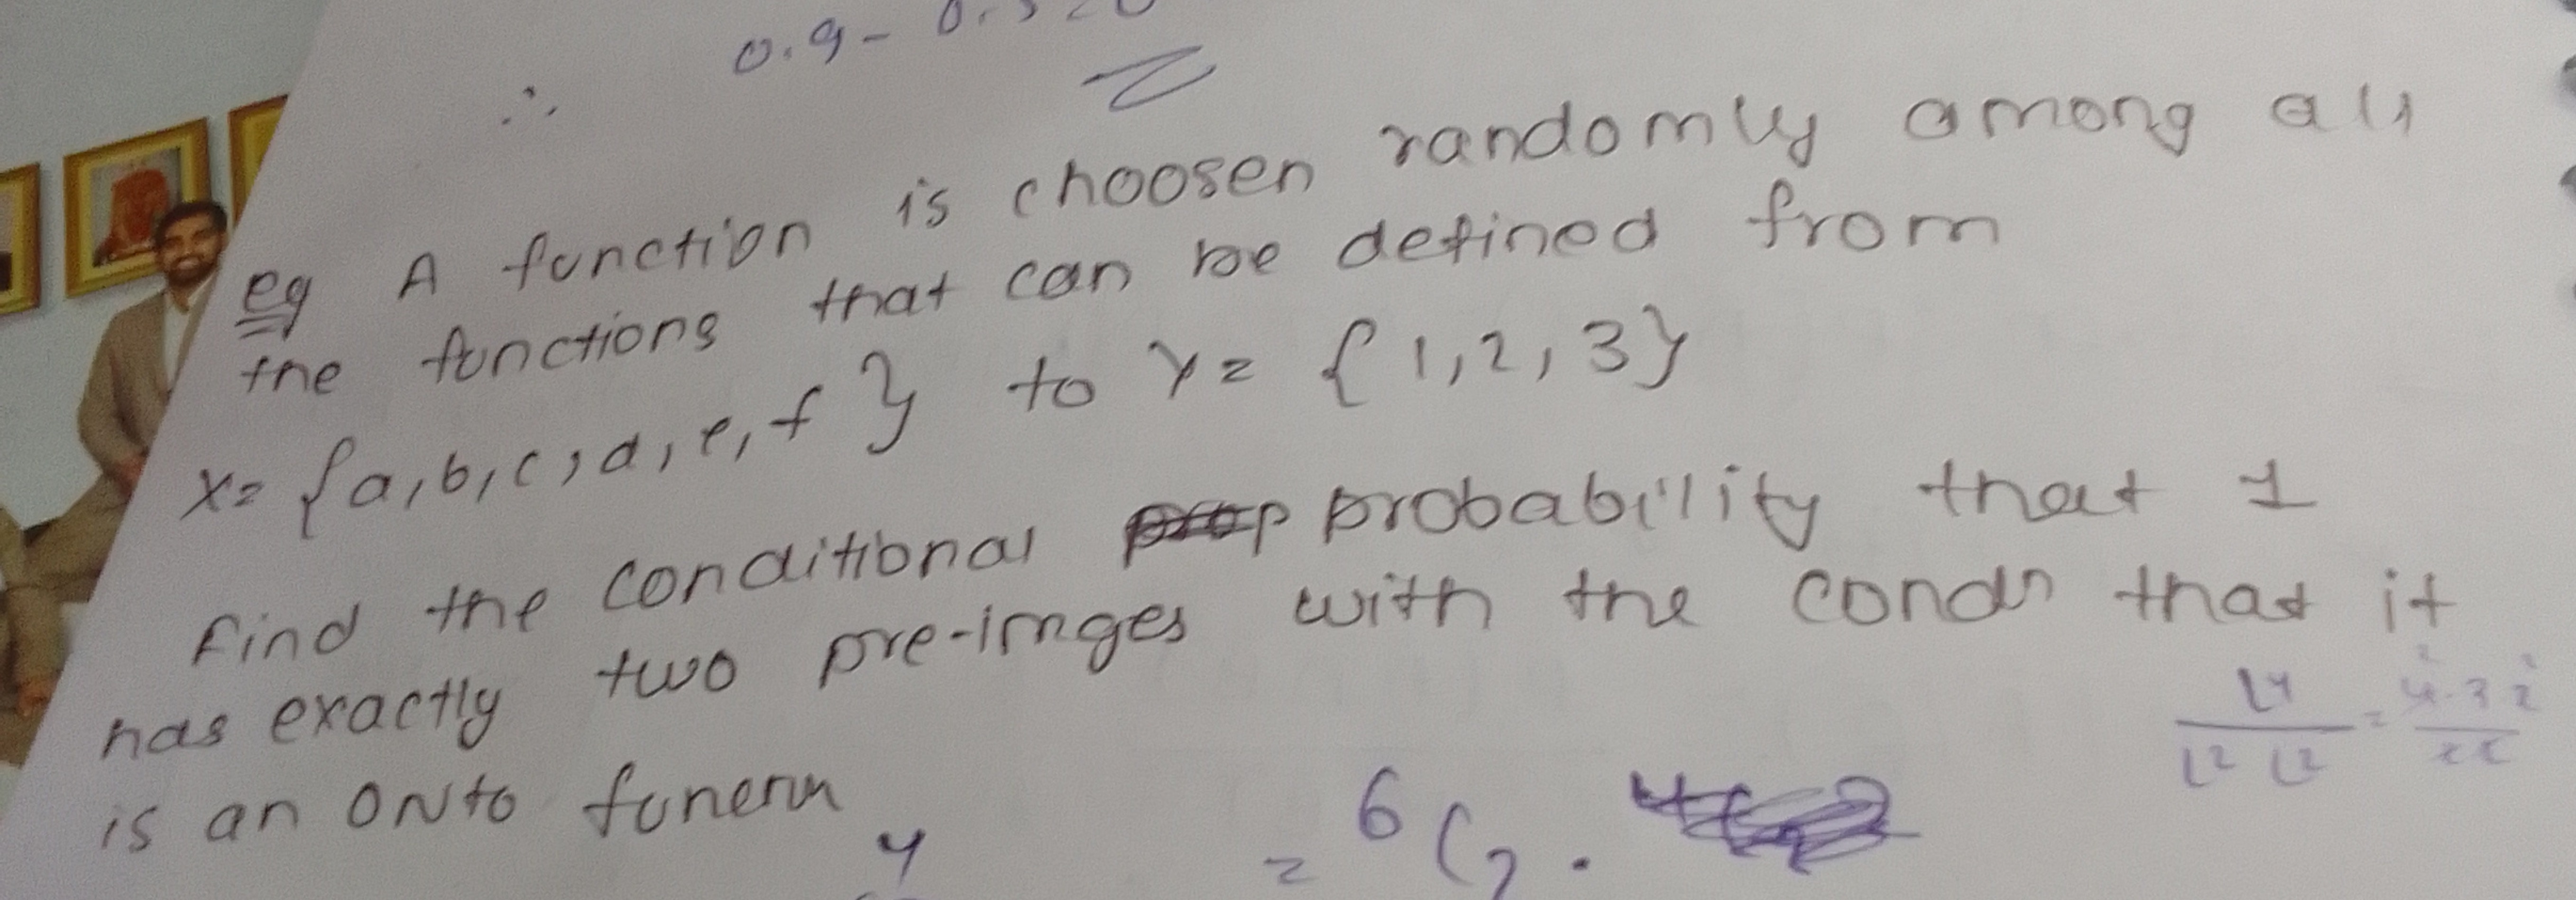 0.9 -
∴
eg A function is choosen randomly among all
the functions that can be defined from
X = {a,b,c,d,e,f} to Y = {1,2,3}
find the conditional probability that 1
has exactly two pre-imges with the condn that it
is an ONto
⌊4 / ⌊2 ⌊2 =
4
= ⁶C₂ .